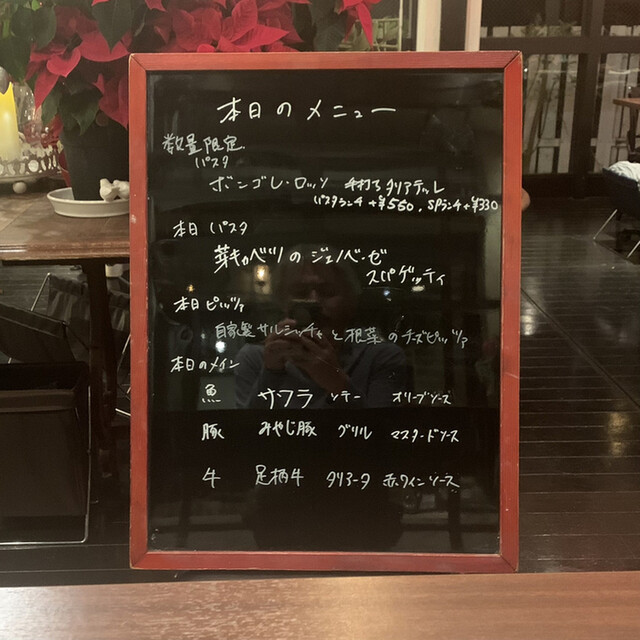 本日のメニュー
数量限定
パスタ
ボンゴレ・ロッソ 手打ちタリアテッレ
パスタランチ+¥550、SPランチ+¥330
本日パスタ
芽キャベツのジェノベーゼ
スパゲッティ
本日ピッツァ
自家製サルシッチャと根菜のチーズピッツァ
本日のメイン
魚 サワラ ソテー オリーブソース
豚 みやじ豚 グリル マスタードソース
牛 足柄牛 タリアータ 赤ワインソース